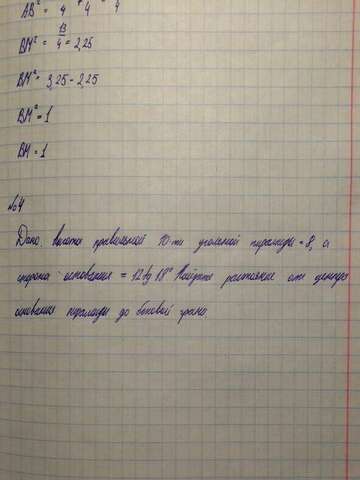 AB² = 4 4 = 4
BM² = 13/4 = 2,25
BM² = 3,25 - 2,25
BM² = 1
BM = 1
№4
Дано: высота правильной 10-ти угольной пирамиды = 8, а
сторона основания = 12tg 18° Найдите расстояние от центра
основания пирамиды до боковой грани.